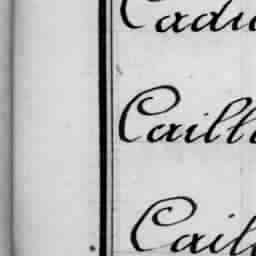 Cadu
Caill
Cail